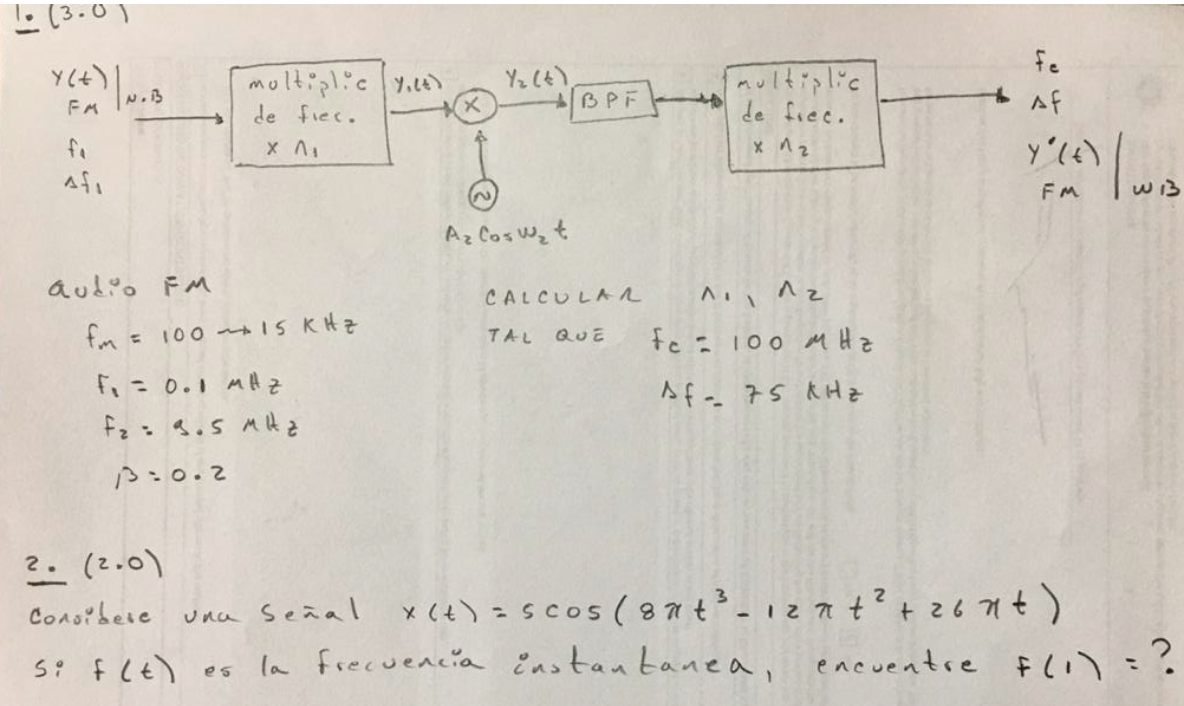 1. (3.0)
Y(t) | N.B
FM
f₁
Δf₁
multiplic
de frec.
x n₁
Y₁(t)
X
Y₂(t)
BPF
multiplic
de frec.
x n₂
fc
Δf
Y'(t) | WB
FM
~
A₂ Cos W₂ t
audio FM
fm = 100 → 15 KHz
f₁ = 0.1 MHz
f₂ = 9.5 MHz
β = 0.2
CALCULAR n₁, n₂
TAL QUE fc = 100 MHz
Δf = 75 KHz
2. (2.0)
Considere una señal x(t) = 5 cos (8πt³ - 12πt² + 26πt)
Si f(t) es la frecuencia instantanea, encuentre f(1) = ?